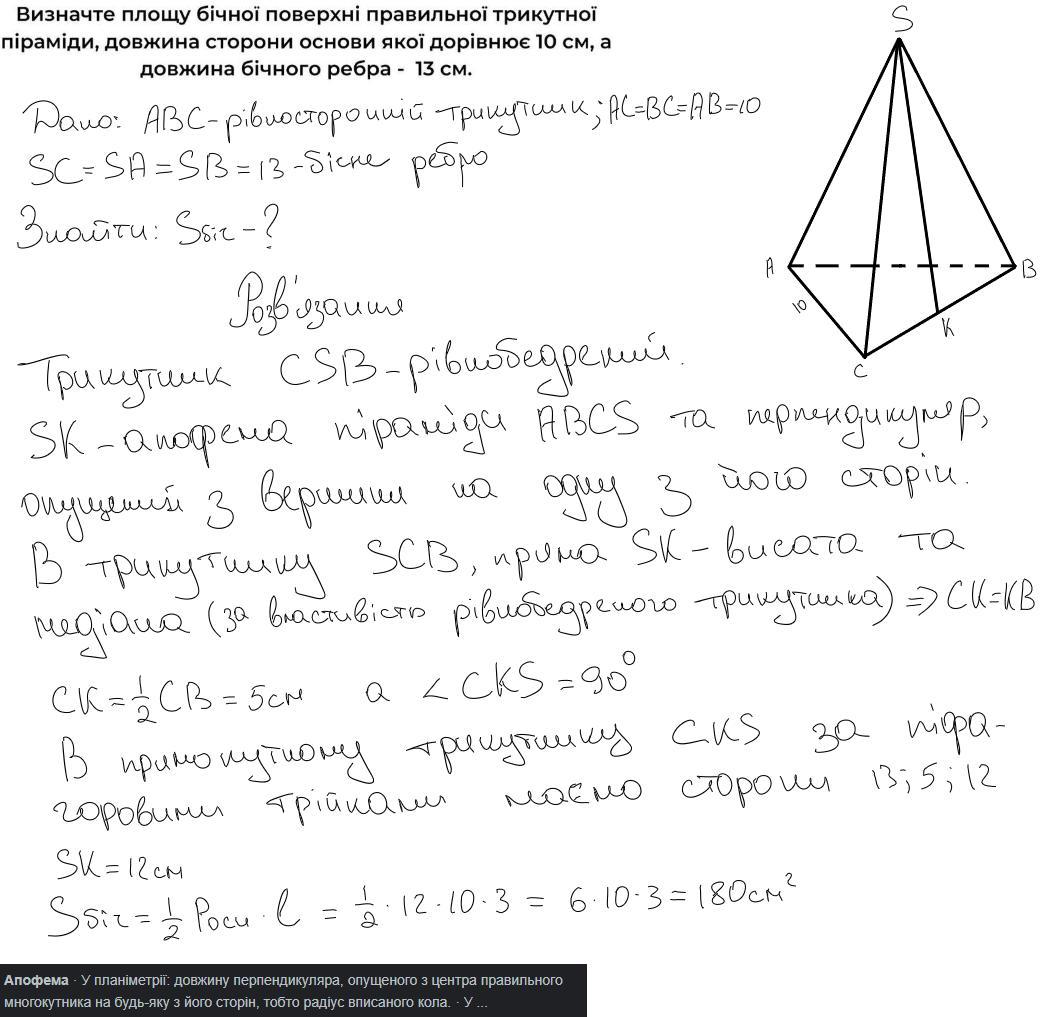 Визначте площу бічної поверхні правильної трикутної
піраміди, довжина сторони основи якої дорівнює 10 см, а
довжина бічного ребра - 13 см.
Дано: ABC-рівносторонній трикутник; AC=BC=AB=10
SC=SA=SB=13-бічне ребро
Знайти: Sбіч-?
Розв'язання
Трикутник CSB-рівнобедрений.
SK-апофема піраміди ABCS та перпендикуляр,
опущений з вершини на одну з його сторін.
В трикутнику SCB, пряма SK-висата та
медіана (за властивістю рівнобедреного трикутника) => CK=KB
CK=1/2 CB=5см а ∠CKS=90°
В прямокутному трикутнику CKS за піфа-
горовими трійками маємо сторони 13;5;12
SK=12см
Sбіч=1/2 Pосн·l = 1/2·12·10·3 = 6·10·3=180см²
S
A
B
10
K
C
Апофема · У планіметрії: довжину перпендикуляра, опущеного з центра правильного
многокутника на будь-яку з його сторін, тобто радіус вписаного кола. · У ...